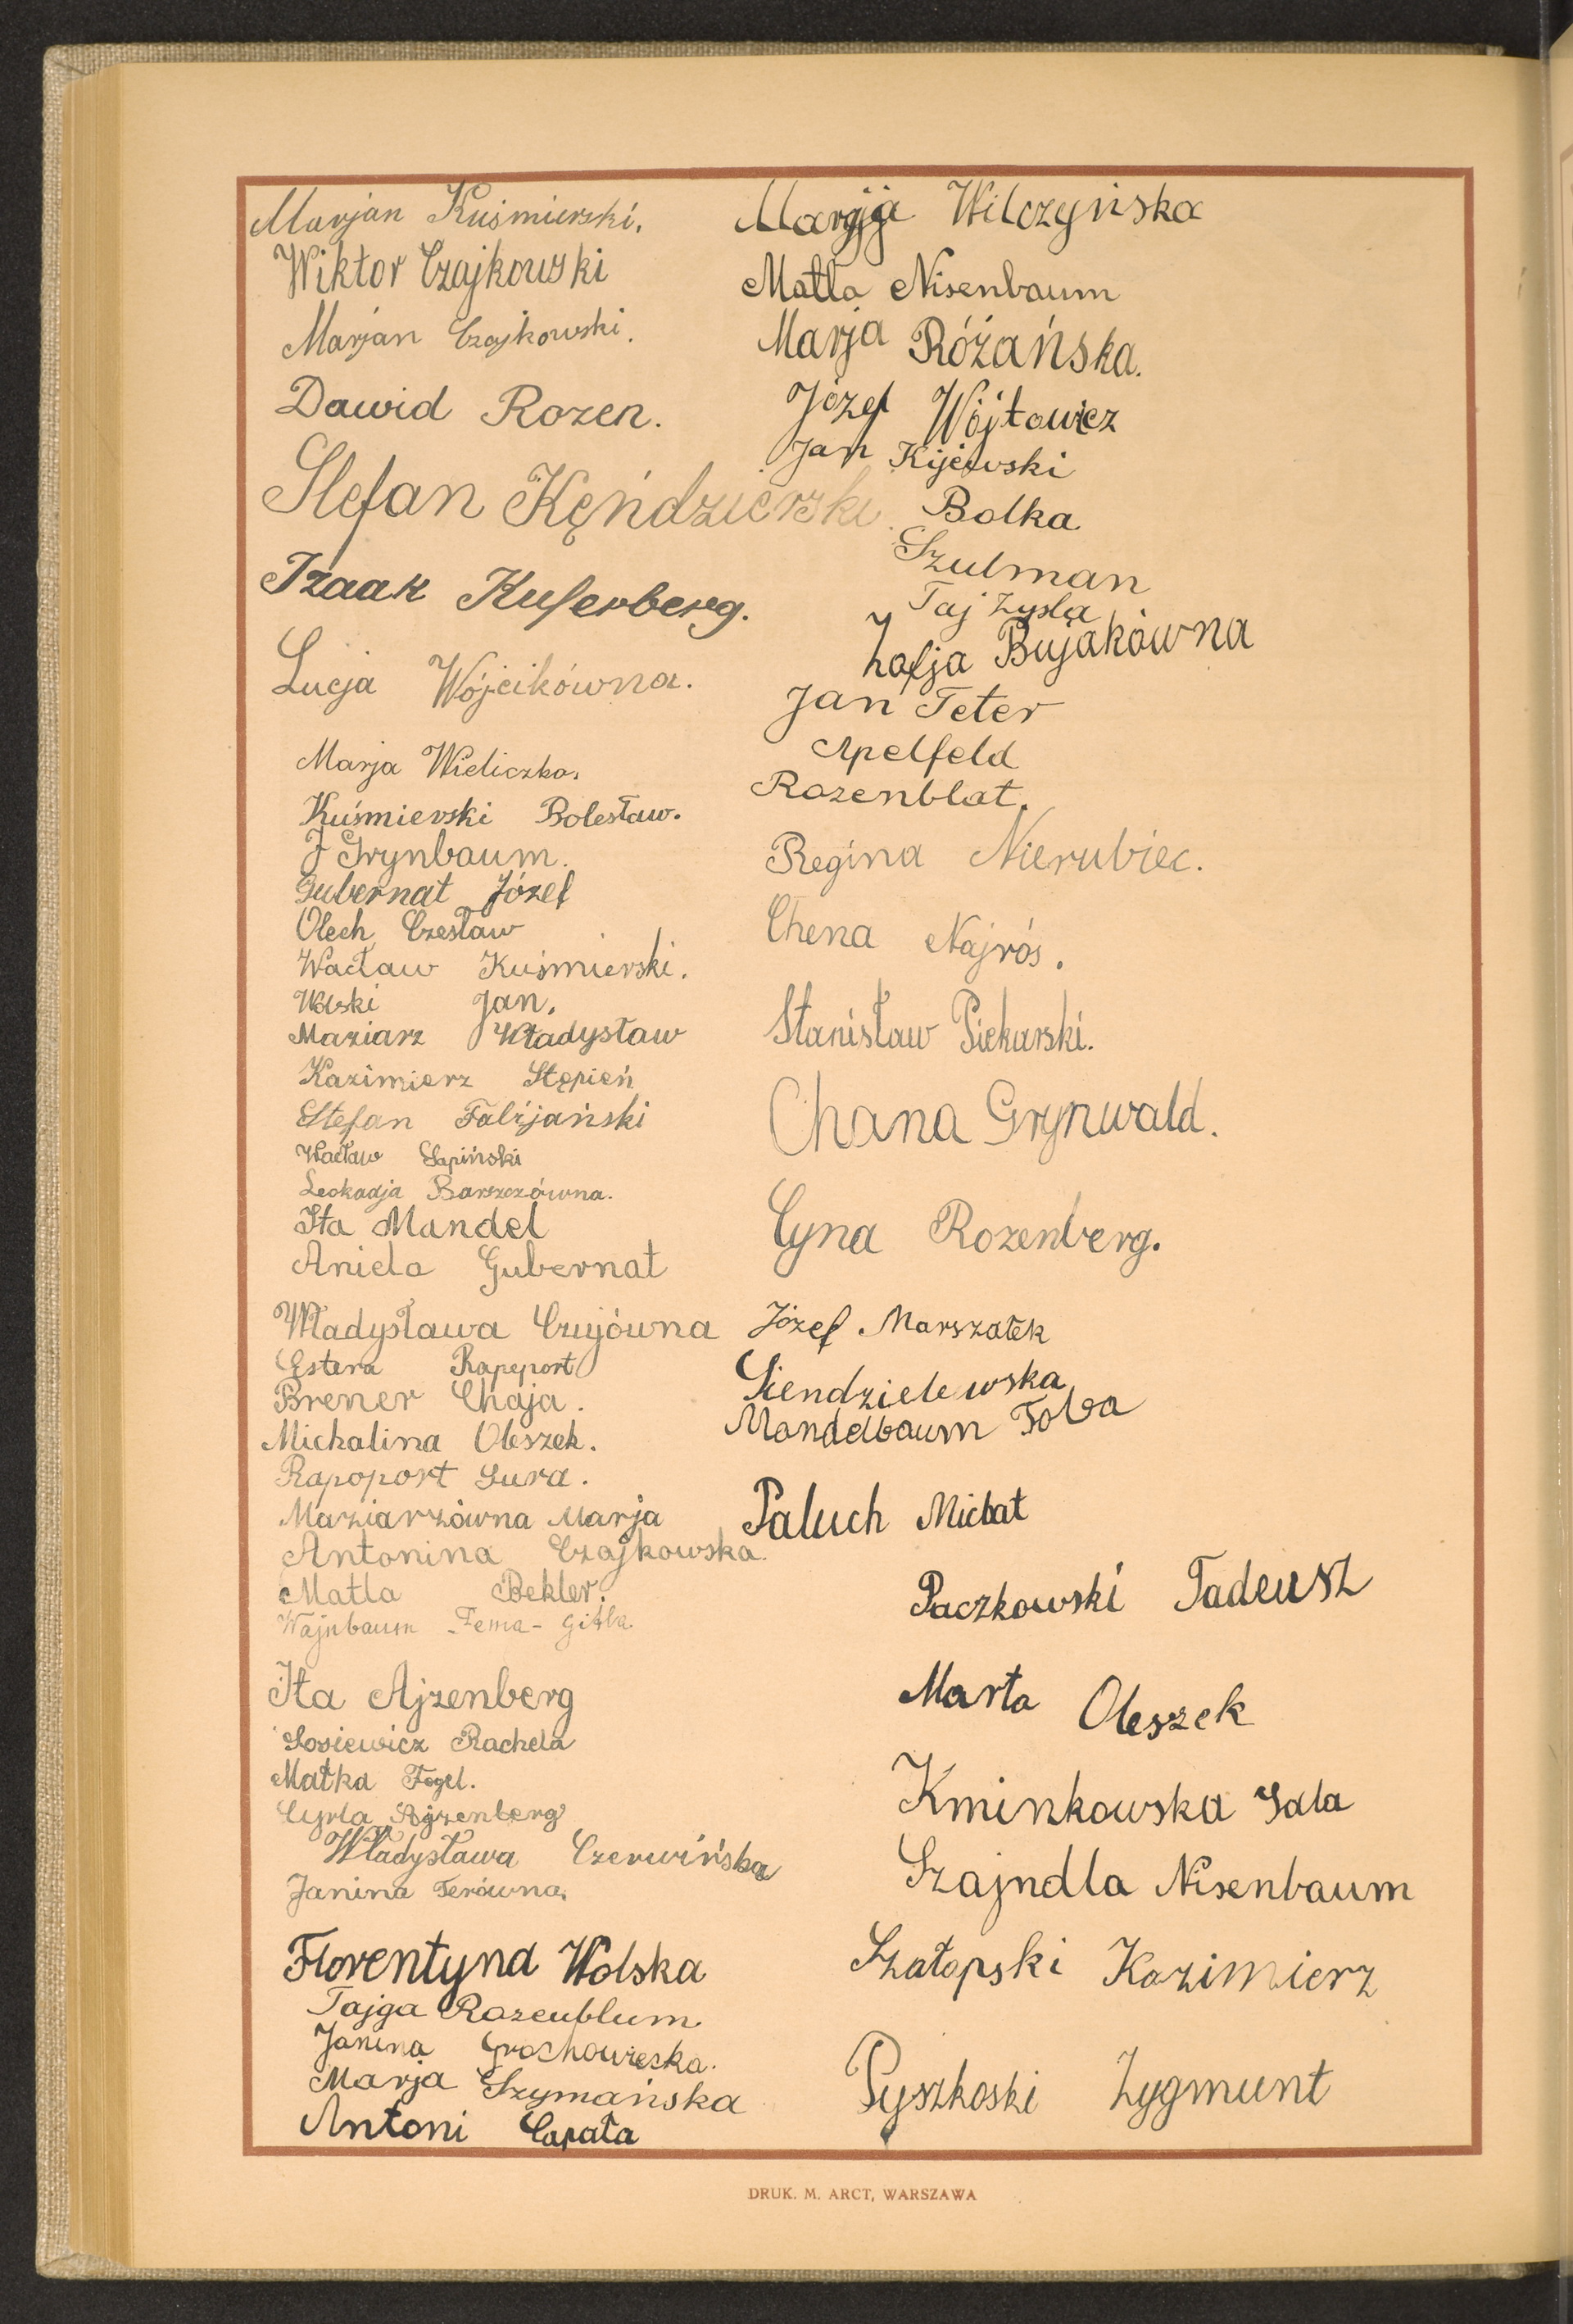 Marjan Kuśmierski.
Wiktor Czajkowski
Marjan Czajkowski.
Dawid Rozen.
Stefan Kęńdzierski.
Izaak Kuferberg.
Lucja Wójcikówna.
Marja Wieliczko.
Kuśmierski Bolesław.
J Grynbaum.
Gubernat Józef
Olech Czesław
Wacław Kuśmierski.
Wolski Jan.
Maziarz Władysław
Kazimierz Stępień
Stefan Fabijański
Wacław Łapiński
Leokadja Barszczówna.
Ita Mandel
Aniela Gubernat
Władysława Czujówna
Estera Rapeport
Brener Chaja.
Michalina Oleszek.
Rapoport Sura.
Maziarzówna Marja
Antonina Czajkowska.
Matla Bekler.
Wajnbaum - Fema - Gitla.
Ita Ajzenberg
Sosiewicz Rachela
Matka Fogel.
Cyrla Ajzenberg
Władysława Czerwińska
Janina Terówna.
Florentyna Wolska
Tajga Rozenblum
Janina Grochowieska.
Marja Szymańska
Antoni Capała
Marjja Wilczyńska
Matla Nisenbaum
Marja Różańska.
Józef Wójtowicz
Jan Kijewski
Bolka
Szulman
Taj Zysla
Zofja Bujakówna
Jan Teter
Apelfeld
Rozenblat.
Regina Nierubiec.
Chena Najrós.
Stanisław Piekarski.
Chana Grynwald.
Cyna Rozenberg.
Józef Marszałek
Siendzielewska
Mandelbaum Toba
Paluch Michał
Paczkowski Tadeusz
Marta Oleszek
Kminkowska Sala
Szajndla Nisenbaum
Szatopski Kazimierz
Pyszkoski Zygmunt
DRUK. M. ARCT, WARSZAWA